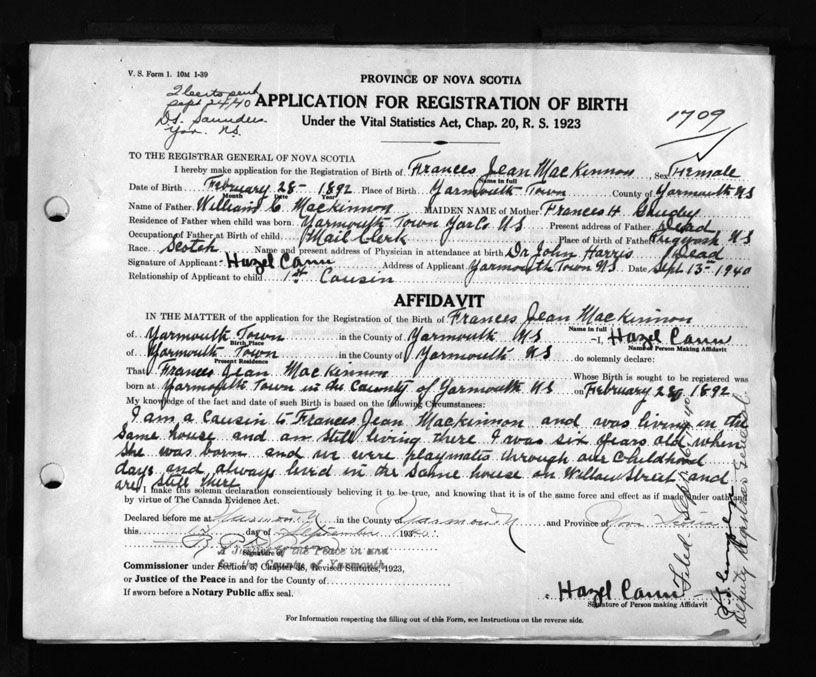 V. S. Form 1. 10M 1-39
sept 24/40
Yar. N.S.
PROVINCE OF NOVA SCOTIA
APPLICATION FOR REGISTRATION OF BIRTH
Under the Vital Statistics Act, Chap. 20, R. S. 1923
1709
TO THE REGISTRAR GENERAL OF NOVA SCOTIA
I hereby make application for the Registration of Birth of Frances Jean MacKinnon, Sex Female
Name in full
Date of Birth February 28 - 1892 Place of Birth Yarmouth Town County of Yarmouth NS
Month Date Year
Name of Father William C. MacKinnon MAIDEN NAME of Mother Frances H.
Residence of Father when child was born Yarmouth Town Yar Co. NS Present address of Father Dead
Occupation of Father at Birth of child Mail Clerk Place of birth of Father Pugwash NS
Race Scotch Name and present address of Physician in attendance at birth Dr John Harris Dead
Signature of Applicant Hazel Cann Address of Applicant Yarmouth Town NS Date Sept 13th 1940
Relationship of Applicant to child 1st Causin
AFFIDAVIT
IN THE MATTER of the application for the Registration of the Birth of Frances Jean MacKinnon
Name in full
of Yarmouth Town in the County of Yarmouth NS —I, Hazel Cann
Birth Place Name of Person Making Affidavit
of Yarmouth Town in the County of Yarmouth NS do solemnly declare:
Present Residence
That Frances Jean MacKinnon Whose Birth is sought to be registered was
born at Yarmouth Town in the County of Yarmouth NS on February 28, 1892
My knowledge of the fact and date of such Birth is based on the following Circumstances:
I am a causin to Frances Jean Mackinnon and was living in the
same house and am still living there I was six years old when
she was born and we were playmates through our childhood
days and always lived in the same house on Willow Street and
are still there
I make this solemn declaration conscientiously believing it to be true, and knowing that it is of the same force and effect as if made under oath and
by virtue of The Canada Evidence Act.
Declared before me at Yarmouth in the County of Yarmouth and Province of Nova Scotia
this day of September 19
Signature of
A Justice of the Peace in and
for the County of Yarmouth
Commissioner under Section 5, Chapter 38, Revised Statutes, 1923,
or Justice of the Peace in and for the County of
If sworn before a Notary Public affix seal.
Hazel Cann
Signature of Person making Affidavit
For Information respecting the filling out of this Form, see Instructions on the reverse side.
Filed
Deputy Registrar General